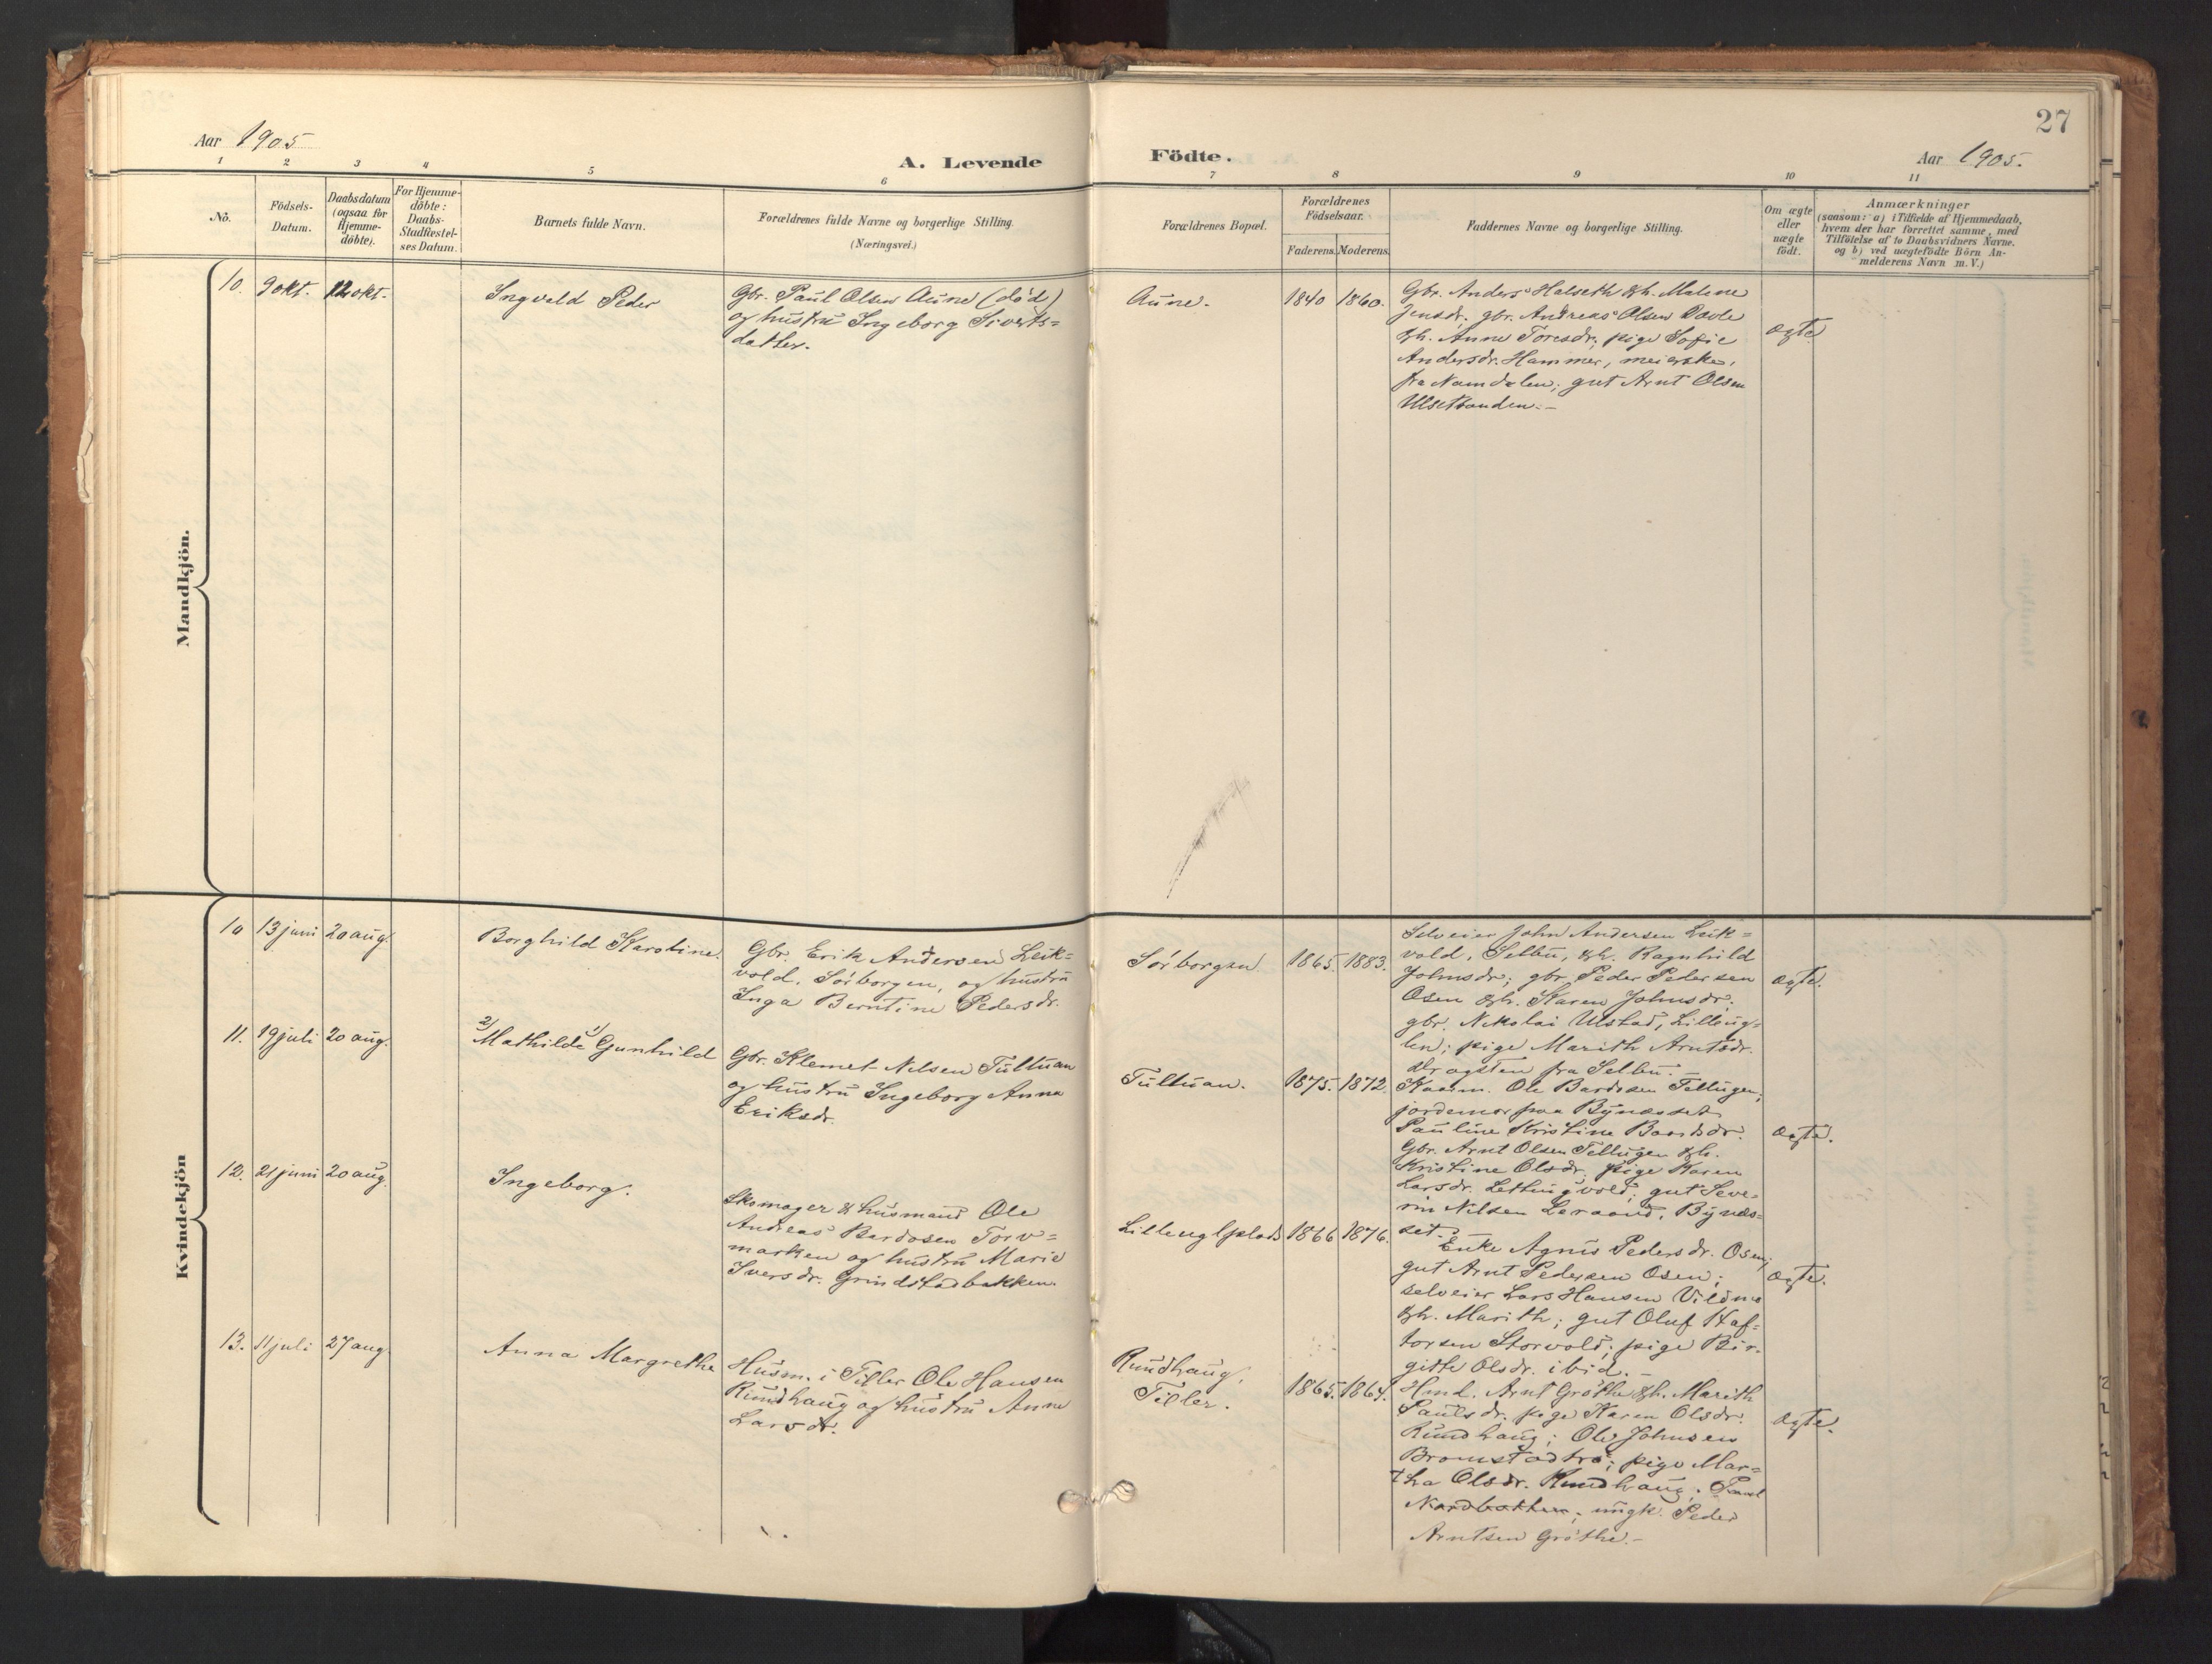 27
Aar 1905
A. Levende
Födte.
Aar 1905.
1 2 3 4 5 6 7 8 9 10 11
No.
Födsels-
Datum.
Daabsdatum
(ogsaa for
Hjemme-
döbte).
For Hjemme-
döbte:
Daabs-
Stadfæstel-
ses Datum.
Barnets fulde Navn.
Forældrenes fulde Navne og borgerlige Stilling.
(Næringsvei.)
Forældrenes Bopæl.
Forældrenes
Födselsaar.
Faderens. Moderens.
Faddernes Navne og borgerlige Stilling.
Om ægte
eller
uægte
födt.
Anmærkninger
(saasom: a) i Tilfælde af Hjemmedaab,
hvem der har forrettet samme, med
Tilföielse af to Daabsvidners Navne.
og b) ved uægtefödte Börn An-
melderens Navn m. V.)
Mandkjön.
10. 9 okt. 12 okt.
Ingvald Peder
Gbr. Paul Olsen Aune (död)
og hustru Ingeborg Siverts=
datter.
Aune.
1840 1860.
Gbr. Anders Halseth &h. Malene
Jensdr; gbr. Andreas Olsen Davle
&h. Anne Toresdr; pige Sofie
Andersdr. Hammer, meierske,
fra Namdalen; gut Arnt Olsen
Ulsetbanden.-
ægte
Kvindekjön
10 13 juni 20 aug.
Borghild Karoline.
Gbr. Erik Andersen Leik=
vold, Sörborgen, og hustru
Inga Berntine Pedersdr.
Sörborgen
1865. 1883.
Selveier John Andersen Leik=
vold, Selbu, &h. Ragnhild
Johnsdr; gbr. Peder Pedersen
Osen &h. Karen Johnsdr.
gbr. Nikolai Ulstad, Lilleug=
len; pige Marith Arntsdr.
Dragsten fra Selbu.-
ægte.
11. 19 juli 20 aug.
2) Mathilde 1) Gunhild
Gbr. Klemet Nilsen Tulluan
og hustru Ingeborg Anna
Eriksdr.
Tulluan.
1875. 1872
Kaarm. Ole Bardosen Tellugen;
jordemor paa Bynæsset
Pauline Kristine Baardsdr.
Gbr. Arnt Olsen Tellugen &h.
Kristine Olsdr. pige Karen
Larsdr. Lettingvold; gut Seve=
rin Nilsen Leraand, Bynæs=
set.-
ægte.
12. 21 juni 20 aug.
Ingeborg.
Skomager & husmand Ole
Andreas Bardosen Torv=
marken og hustru Marie
Iversdr. Grindstadbakken.
Lilleuglplads
1866 1876.
Enke Agnis Pedersdr. Osen;
gut Arnt Pedersen Osen;
selveier Lars Hansen Vildmo
&h. Marith; gut Oluf Haf=
torsen Storvold; pige Bir=
gitte Olsdr. ibid.-
ægte.
13. 11 juli 27 aug.
Anna Margrethe
Husm. i Tiller Ole Hansen
Rundhaug og hustru Anne
Larsdr.
Rundhaug,
Tiller.
1865. 1864.
Hmd. Arnt Gröthe &h. Marith
Paulsdr. pige Karen Olsdr.
Rundhaug; Ole Johnsen
Bromstadtrö; pige Mar=
tha Olsdr. Rundhaug; Paul
Nordbakken; ungk. Peder
Arntsen Gröthe.-
ægte.